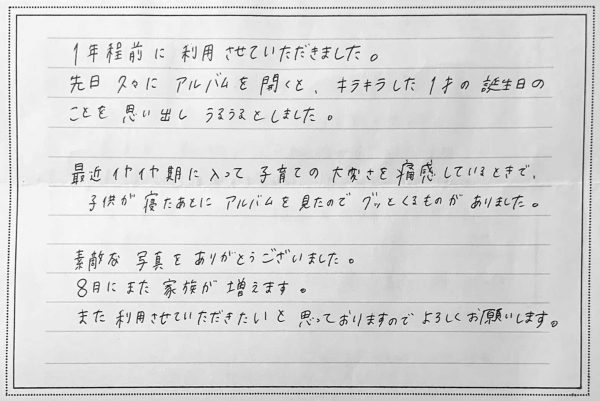 1年程前に利用させていただきました。
先日久々にアルバムを開くと、キラキラした1才の誕生日の
ことを思い出しうるうるとしました。
最近イヤイヤ期に入って子育ての大変さを痛感しているときで、
子供が寝たあとにアルバムを見たのでグッとくるものがありました。
素敵な写真をありがとうございました。
8月にまた家族が増えます。
また利用させていただきたいと思っておりますのでよろしくお願いします。